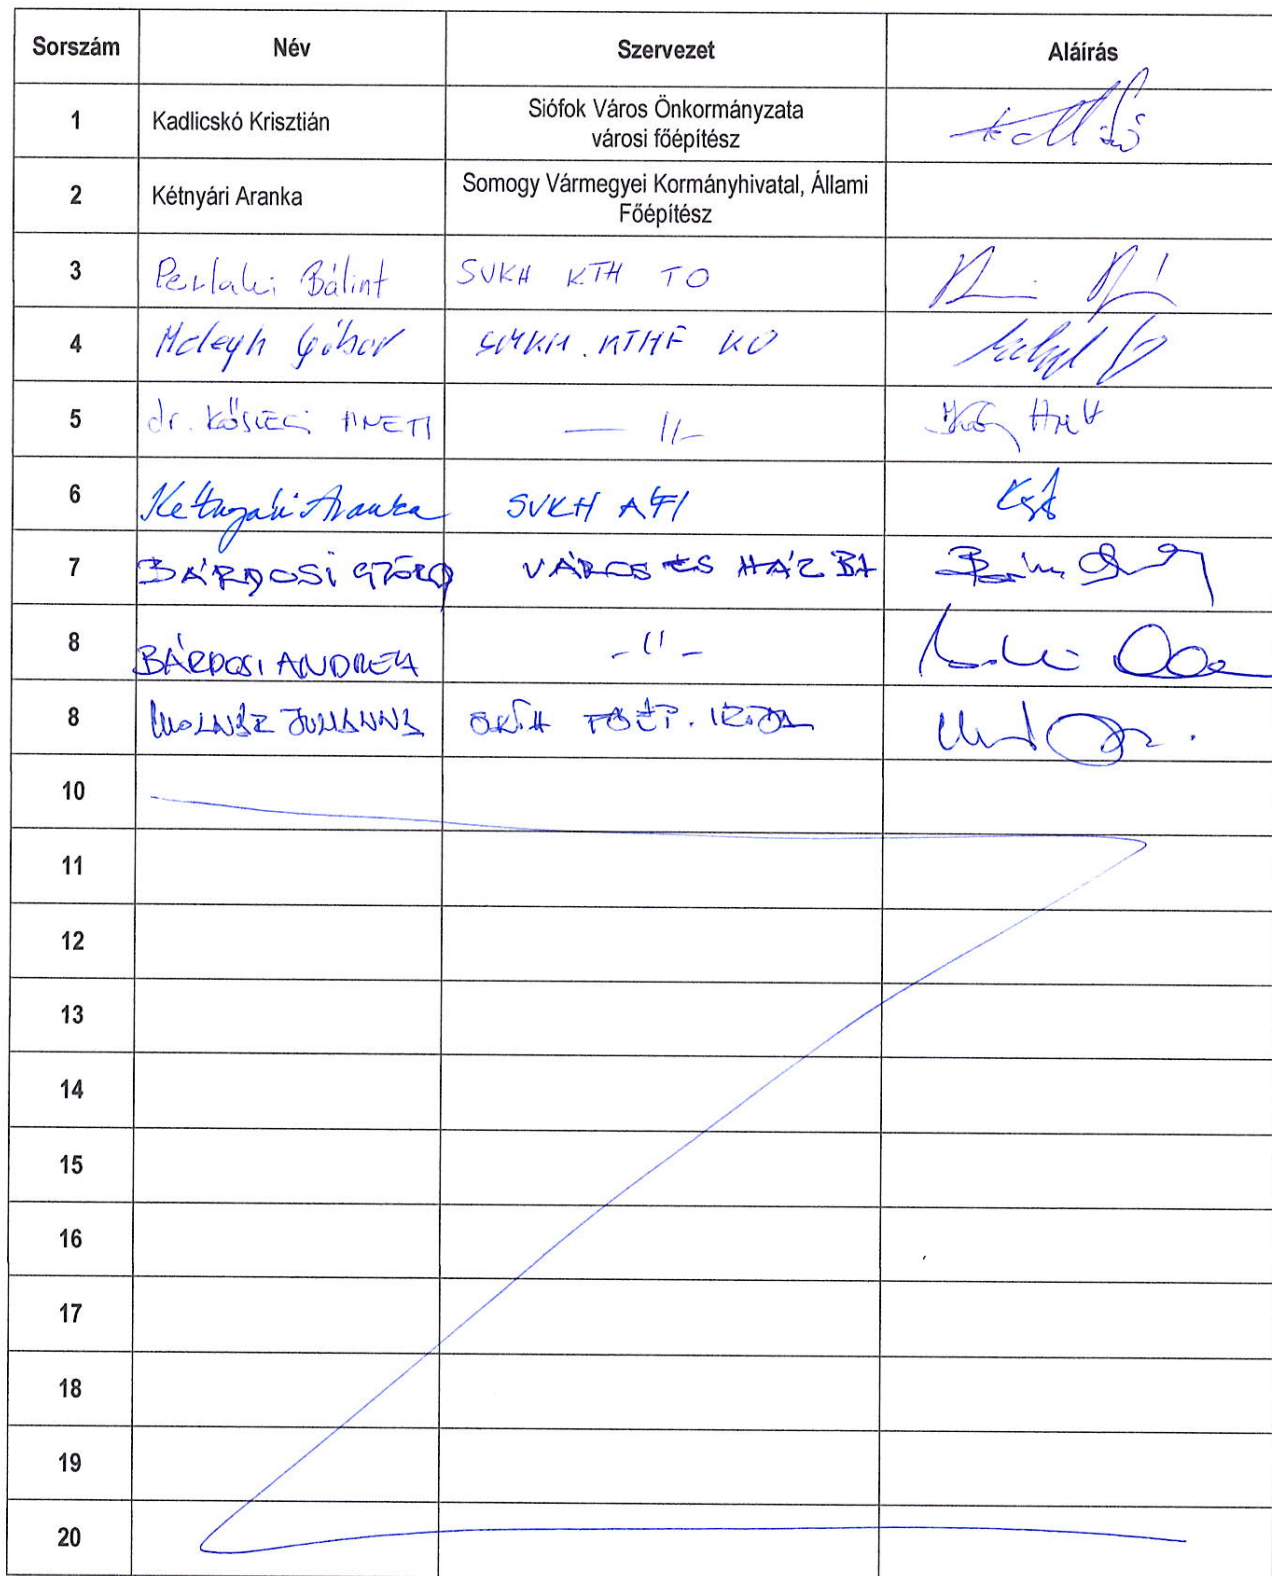 Sorszám Név Szervezet Aláírás
1 Kadlicskó Krisztián Siófok Város Önkormányzata
városi főépítész
2 Kétnyári Aranka Somogy Vármegyei Kormányhivatal, Állami
Főépítész
3 Perlaki Bálint SVKH KTH TO
4 Gábor
5 dr. Kőszegi ANETT — 11 —
6 Kétnyári Aranka SVKH ÁFI
7 BÁRDOSI GYÖRGY VÁROS ÉS HÁZ BT
8 BÁRDOSI ANDREA - 11 -
8 MOLNÁR JULIANNA FŐÉP. IRODA
10
11
12
13
14
15
16
17
18
19
20